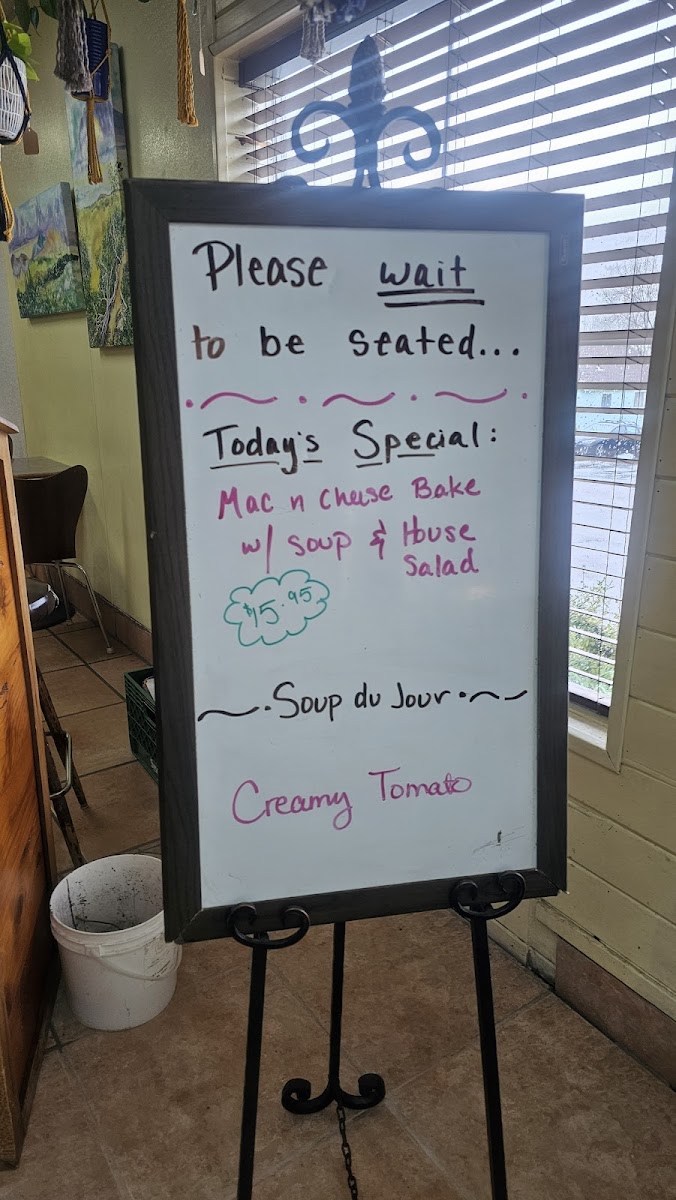 Please wait
to be seated...
Today's Special:
Mac n Cheese Bake
w/ soup & House
Salad
$15.95
Soup du Jour
Creamy Tomato